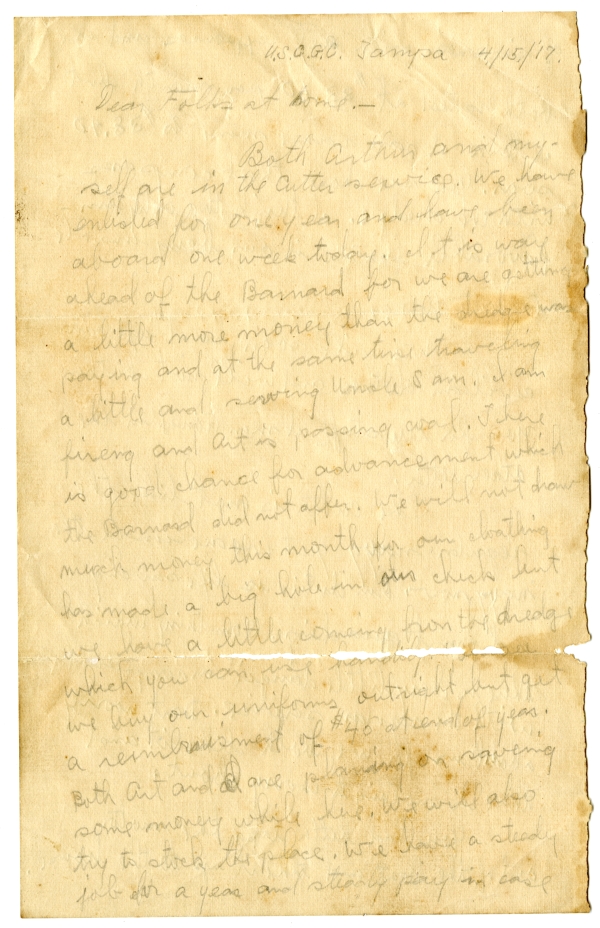 U.S.C.G.C. Tampa 4/15/17.
Dear Folks at home.—
Both Arthur and my-
self are in the Cutter service. We have
enlisted for one year and have been
aboard one week today. It is way
ahead of the Barnard for we are getting
a little more money than the dredge was
paying and at the same time traveling
a little and serving Uncle Sam. I am
fireing and Art is passing coal. There
is good chance for advancement which
the Barnard did not offer. We will not draw
much money this month for our clothing
has made a big hole in our check but
we have a little comeing from the dredge
which you can use
we buy our uniforms outright but get
a reimbursment of $48 at end of year.
Both Art and I are planning on saveing
some money while here. We will also
try to stock the place. We have a steady
job for a year and steady pay in case